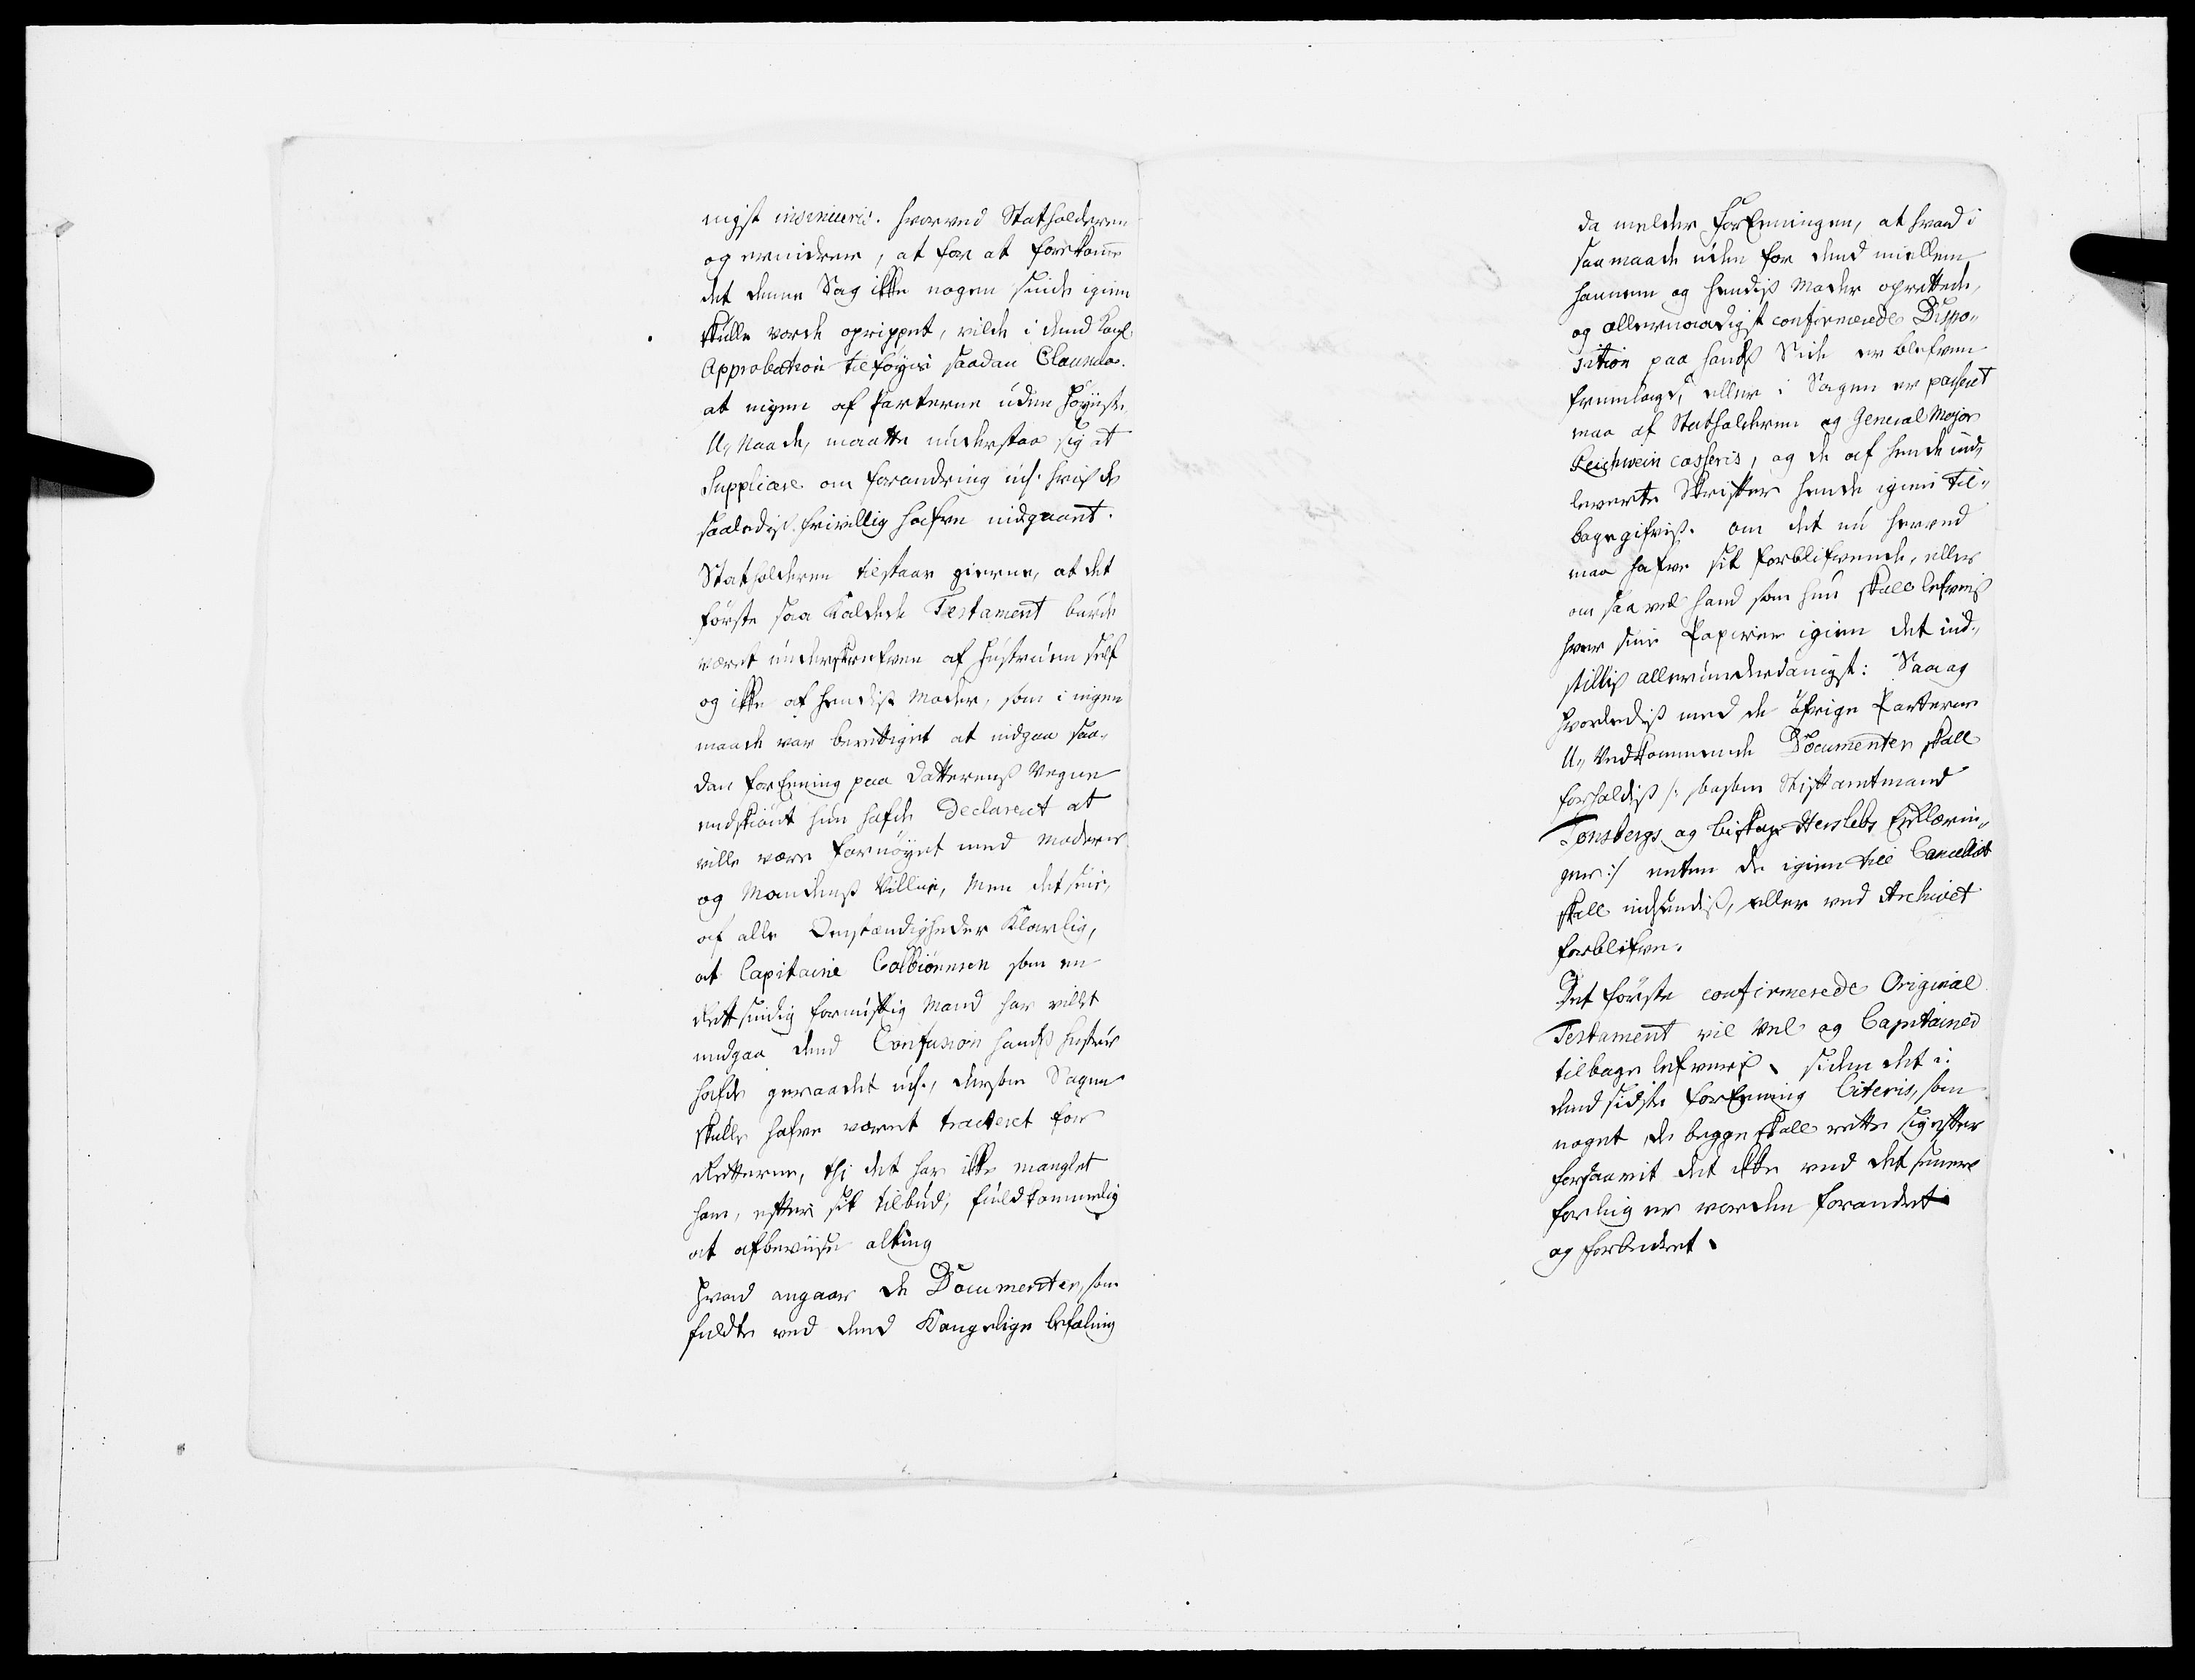 nigst insinueris. hvorved Statholderen
og erindrer, at for at forrekomme
det denne Sag ikke nogen sinde igien
skulle vorde oprippet, vilde i dend Kongl.
Approbation tilföyis saadan Clausula.
at ingen af Parterne uden Höyeste
U-Naade, maatte understaa sig at
Supplicere om forandring udj. hvis de
saaledis frivillig hafve indgaaet.
Statholderen tilstaar gierne, at det
förste saa kaldede Testament burde
været underskrefven af Hustruen self
og ikke af hendis Moder, som i ingen
maade var berettiget at indgaa saa-
dan forEening paa Datterens Vegne
endskiönt hun hafde Declareret at
ville være fornöyet med Moderens
og Mandens Villie, Men det siuis,
af alle Omstændigheder klarlig,
at Capitaine Colbiörnsen som en
Rettsindig fornuftig Mand har villet
undgaa dend Confusion hands Hustrue
hafde geraadet udj., dersom Sagen
skulle hafve været tracteret for
Retterne, thj det har ikke manglet
ham, efter sit tilbud, fuldkommelig
at afbeviise alting
Hvad angaar de Documenter, som
fuldte ved dend Kongelige befaling
da melder ForEeningen, at hvad i
saa maade uden for dend mellem
hannem og hendis Moder oprettede,
og allernaadigst confirmerede Dispo-
sition paa hands Side er blefven
fremlagt, eller i Sagen er passeret
maa af Statholderen og General Major
Reichwein casseris, og de af hende ind-
leverte Skrifter hende igien til-
bagegifvis. om det nu herved
maa hafve sit forblifvende, eller
om saa vel hand som hun skall lefveris
hver sine Papirer igien det ind-
stillis allerunderdanigst: Saa og
hvorledis med de öfrige Parterne
U-Vedkommende Documenter skall
forholdis /: saasom Stiftamtmand
Tonsbergs og biskop Herslebs Erklærin-
ger :/ enten de igien till Cancelliet
skall indsendis, eller ved Archivet
forblifve.
Det förste confirmerede Original
Testament vil vel og Capitainen
tilbage lefveris, siden det i
dend sidste forEening Citeris, som
noget de begge skall rette sig efter
forsaavit det ikke ved det senere
forlig er vorden forandret
og forbedret.